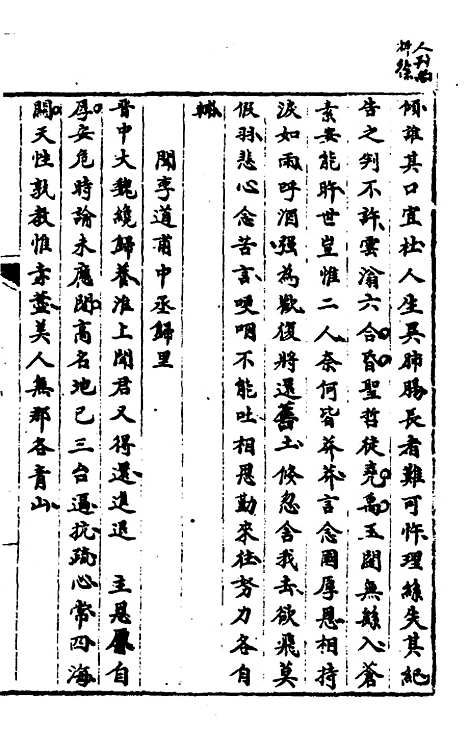 傾誰其口宜杜人生異肺腸長者難可忤理絲失其紀
告之判不許雲滃六合昏聖哲徒堯禹玉關無縣入蒼
素安能盱世豈惟二人奈何皆莽莽言念國厚恩相持
淚如雨呼酒强為歡復將還舊土倏忽舍我去欲飛莫
假羽悲心念苦言哽咽不能吐相思勤來往努力各自
聞李道甫中丞歸里
晉中大魏繞歸養淮上聞君又得還進退 主恩俱自
厚安危時論未應閒高名地已三台逼抗疏心常四海
關天性孰教惟薏薏美人無那各青山